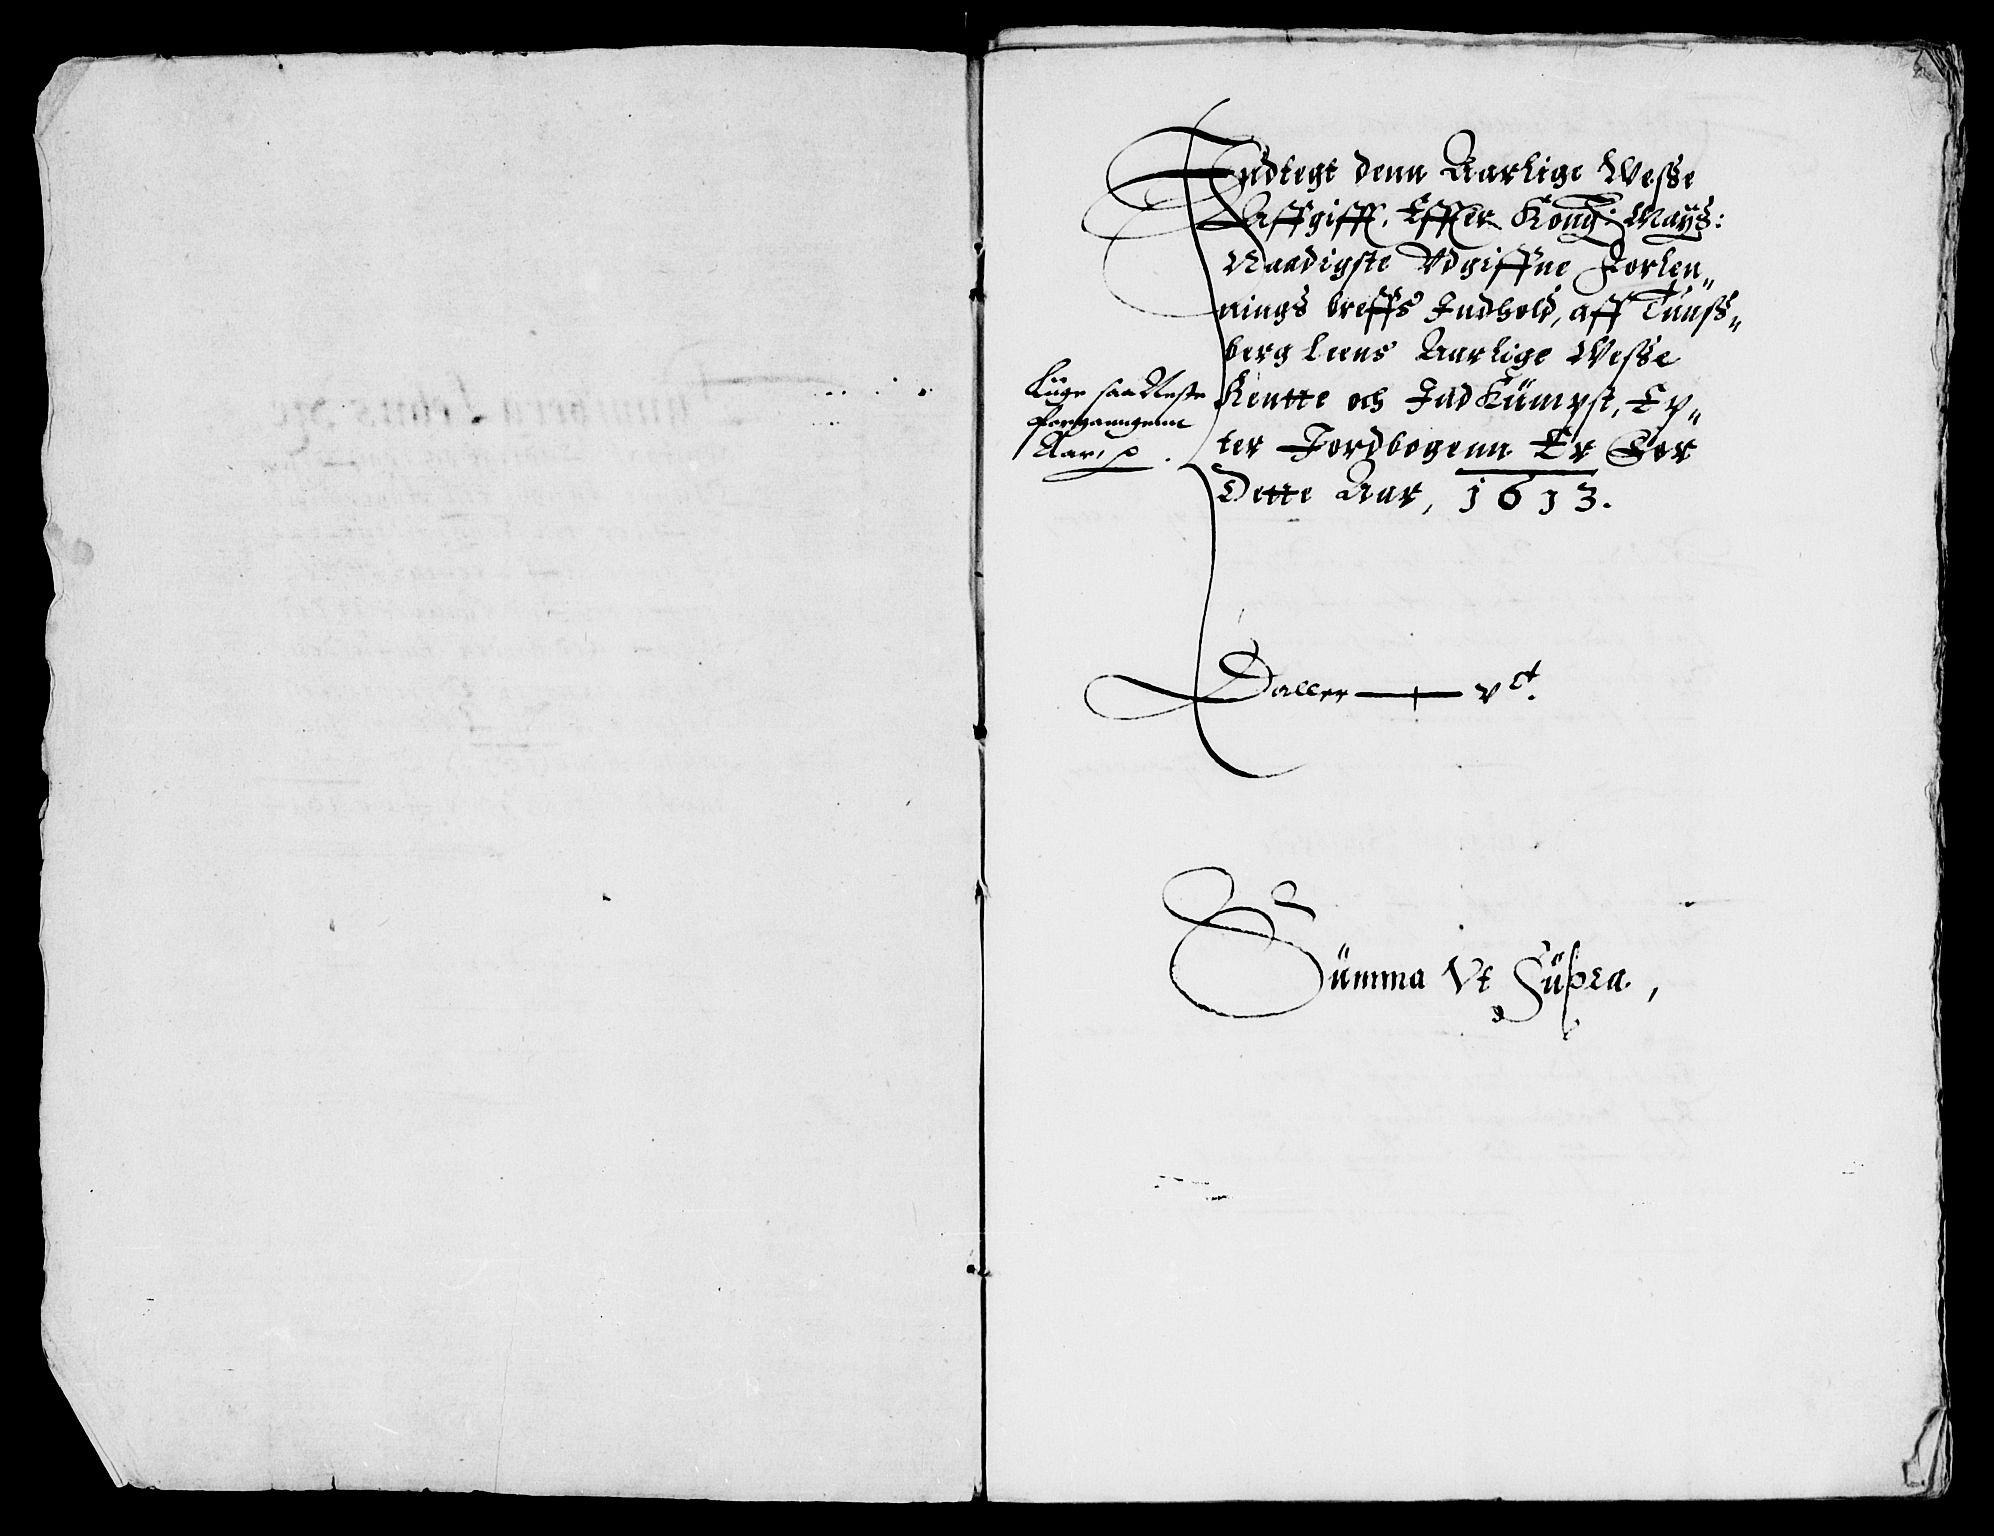 Indlegt denn Aarlige Wesße
Affgifft, Effter Kong: Mayts:
Naadigste Vdgiffne Forlen„
nings breffs Indhold, aff Tünsß„
berg leens Aarlige Wesße
Rentte och Indkümpst, Ep„
ter Jordbogenn Er For
Dette Aar, 1613.
Liige saa Neste
forganngenne
Aar,
Daller — vᶜ.
Sümma Vt Süpra,